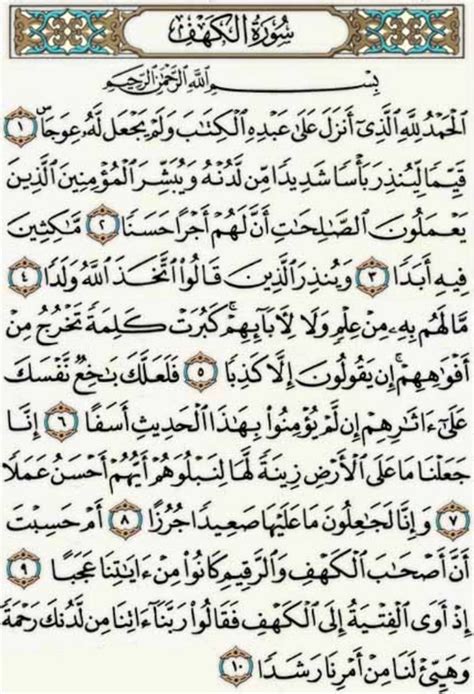 سُورَةُ الكَهْفِ
بِسْمِ اللَّهِ الرَّحْمَٰنِ الرَّحِيمِ
ٱلْحَمْدُ لِلَّهِ ٱلَّذِىٓ أَنزَلَ عَلَىٰ عَبْدِهِ ٱلْكِتَٰبَ وَلَمْ يَجْعَل لَّهُۥ عِوَجَاۜ ١
قَيِّمًا لِّيُنذِرَ بَأْسًا شَدِيدًا مِّن لَّدُنْهُ وَيُبَشِّرَ ٱلْمُؤْمِنِينَ ٱلَّذِينَ
يَعْمَلُونَ ٱلصَّٰلِحَٰتِ أَنَّ لَهُمْ أَجْرًا حَسَنًا ٢ مَّٰكِثِينَ
فِيهِ أَبَدًا ٣ وَيُنذِرَ ٱلَّذِينَ قَالُوا۟ ٱتَّخَذَ ٱللَّهُ وَلَدًا ٤
مَّا لَهُم بِهِۦ مِنْ عِلْمٍ وَلَا لِءَابَآئِهِمْ ۚ كَبُرَتْ كَلِمَةً تَخْرُجُ مِنْ
أَفْوَٰهِهِمْ ۚ إِن يَقُولُونَ إِلَّا كَذِبًا ٥ فَلَعَلَّكَ بَٰخِعٌ نَّفْسَكَ
عَلَىٰٓ ءَاثَٰرِهِمْ إِن لَّمْ يُؤْمِنُوا۟ بِهَٰذَا ٱلْحَدِيثِ أَسَفًا ٦ إِنَّا
جَعَلْنَا مَا عَلَى ٱلْأَرْضِ زِينَةً لَّهَا لِنَبْلُوَهُمْ أَيُّهُمْ أَحْسَنُ عَمَلًا
٧ وَإِنَّا لَجَٰعِلُونَ مَا عَلَيْهَا صَعِيدًا جُرُزًا ٨ أَمْ حَسِبْتَ
أَنَّ أَصْحَٰبَ ٱلْكَهْفِ وَٱلرَّقِيمِ كَانُوا۟ مِنْ ءَايَٰتِنَا عَجَبًا ٩
إِذْ أَوَى ٱلْفِتْيَةُ إِلَى ٱلْكَهْفِ فَقَالُوا۟ رَبَّنَآ ءَاتِنَا مِن لَّدُنكَ رَحْمَةً
وَهَيِّئْ لَنَا مِنْ أَمْرِنَا رَشَدًا ١٠